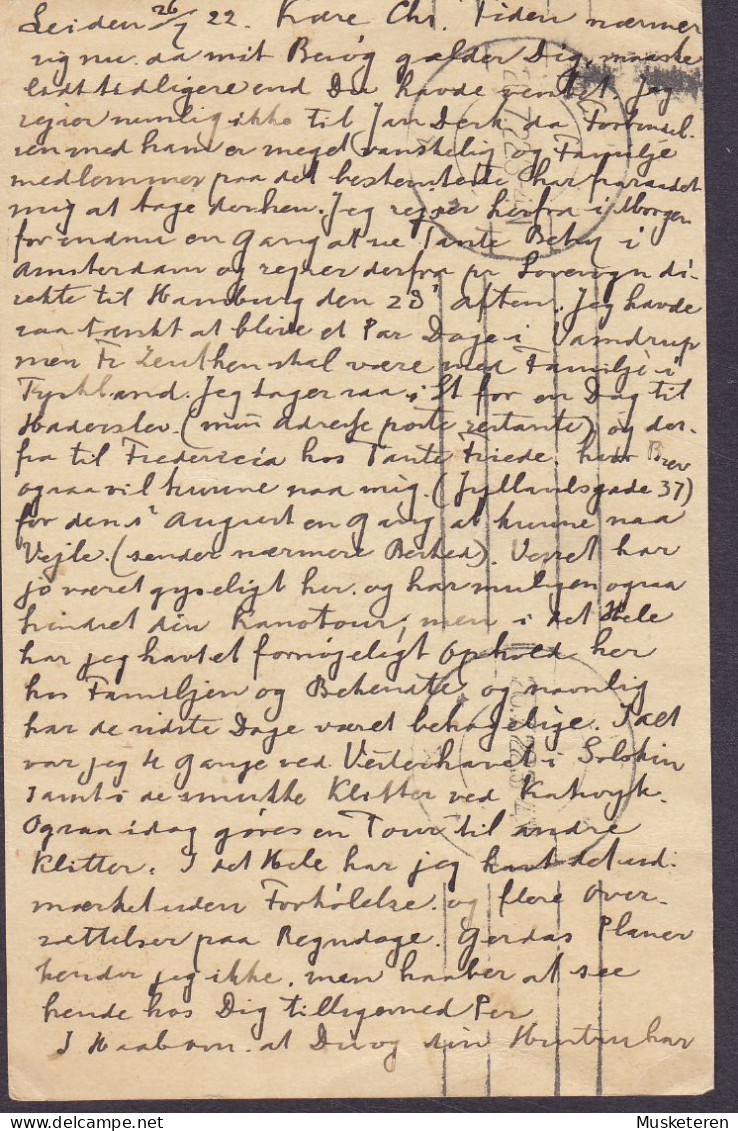 Leiden 26/7 22. Kære Chr. Tiden nærmer
sig nu da mit Besøg gælder Dig, maaske
lidt tidligere end Du havde ventet. Jeg
rejser nemlig ikke til Jan Derk da Forbindel-
sen med ham er meget vanskelig og Familje
medlemmer paa det bestemteste har fraraadet
mig at tage derhen. Jeg rejser herfra i Morgen
for endnu en Gang at se Tante Betsy i
Amsterdam og rejser derfra pr Sovevogn di-
rekte til Hamburg den 28' Aften. Jeg havde
saa tænkt at blive et Par Dage i Vamdrup
men Fr Zeuthen skal være med Familje i
Tyskland. Jeg tager saa i St for en Dag til
Haderslev. (min adresse poste restante) og der-
fra til Fredericia hos Tante Friede. hvor Brev
ogsaa vil kunne naa mig. (Jyllandsgade 37)
for den 1' August en Gang at kunne naa
Vejle. (sender nærmere Besked). Vejret har
jo været gyseligt her. og har muligen ogsaa
hindret din Kanotour, men i det Hele
har jeg havt et fornøjeligt Ophold her
hos Familjen og Bekendte, og navnlig
har de sidste Dage været behagelige. Idet
var jeg 4 Gange ved Vesterhavet i Solskin
samt i de smukke Klitter ved Katwyk.
Ogsaa idag gøres en Tour til andre
Klitter. I det Hele har jeg havt det ud-
mærket uden Forkølelse. og flere Over-
sættelser paa Regndage. Gerdas Planer
kender jeg ikke, men haaber at see
hende hos Dig tilligemed Per
I Haabom. at Du og din Hustru har
Musketeren